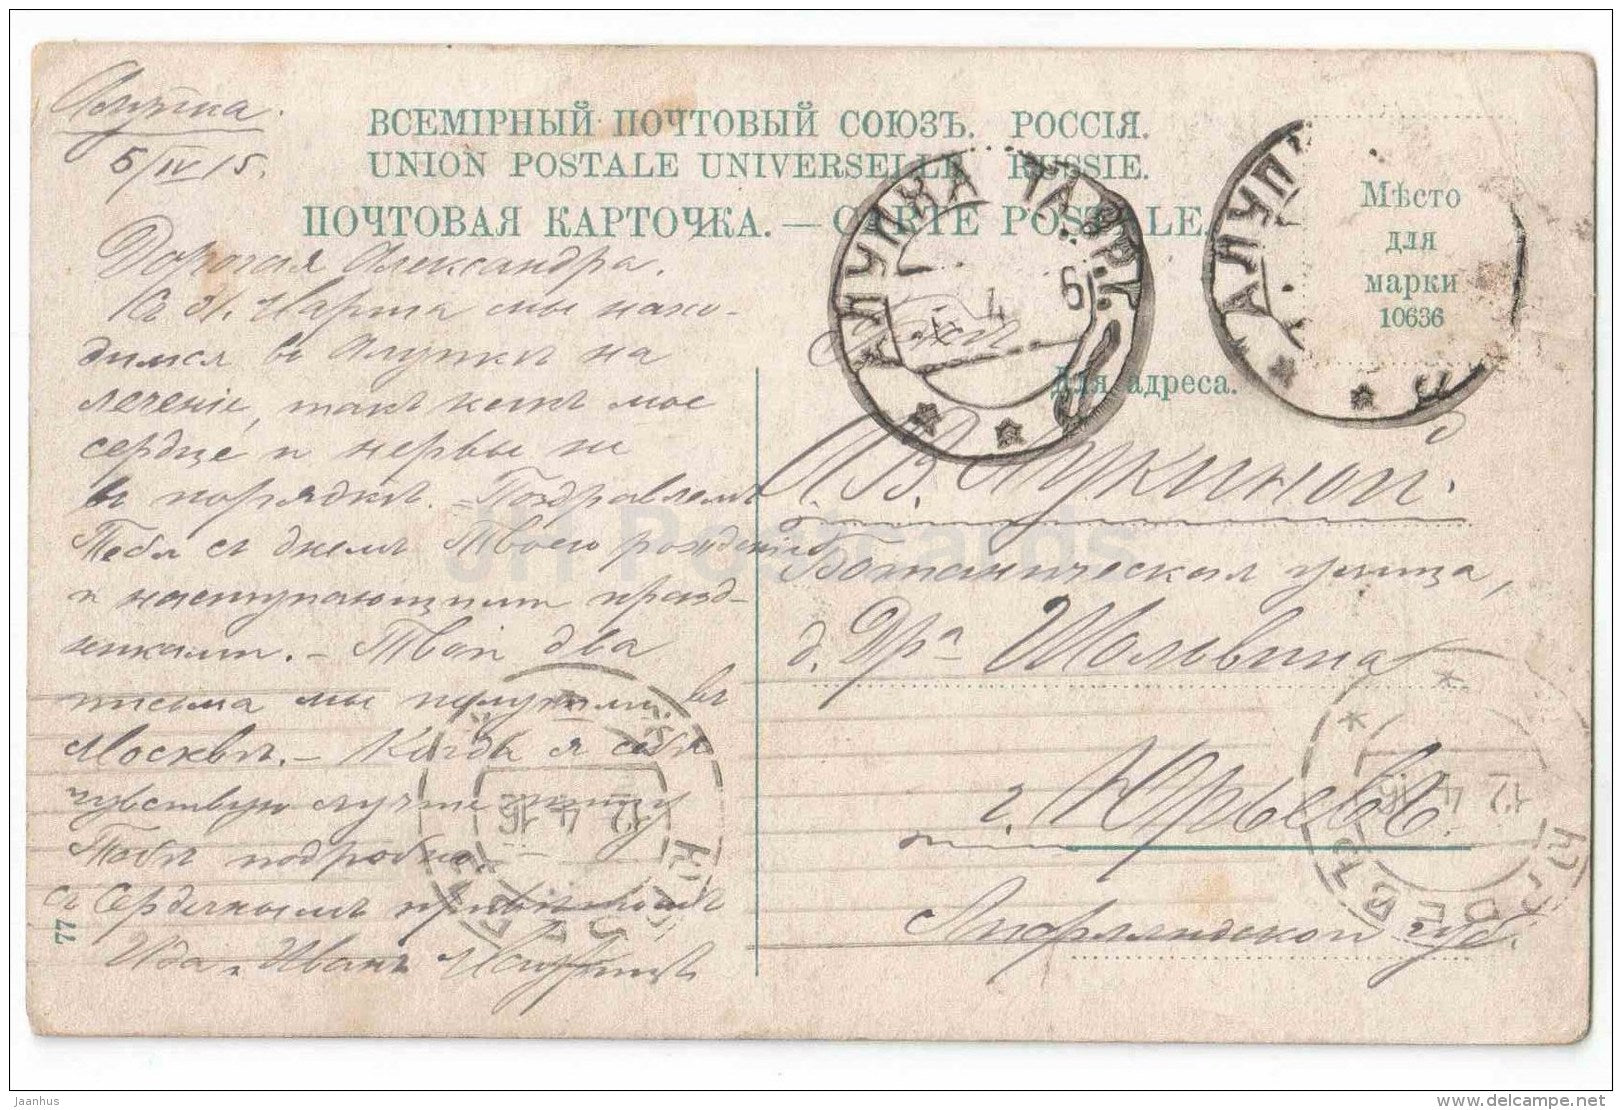 Алупка.
5/IV 15.
ВСЕМІРНЫЙ ПОЧТОВЫЙ СОЮЗЪ. РОССІЯ.
UNION POSTALE UNIVERSELLE RUSSIE.
ПОЧТОВАЯ КАРТОЧКА. — CARTE POSTALE.
Мѣсто
для
марки
10636
АЛУПКА ТАВР. Г.
АЛУП
Для адреса.
Дорогая Александра.
мы нахо-
димся въ Алупкѣ на
леченіе, такъ какъ мое
сердце и нервы не
въ порядкѣ. — Поздравляемъ
Тебя съ днемъ Твоего рожденія
и наступающими празд-
никами. — Твои два
письма мы получили въ
Москвѣ. — Когда я себя
чувствую лучше напишу
Тебѣ подробно.
Съ сердечнымъ привѣтомъ
Ида и Иванъ
А. В. Лукиной.
Ботаническая улица,
д. Дра Шольвина
г. Юрьевъ.
Лифляндской губ.
ЮРЬЕВЪ
12 4 15
ЮРЬЕВЪ
12 4 15
77
JH Postcards
Jaanhus
www.delcampe.net